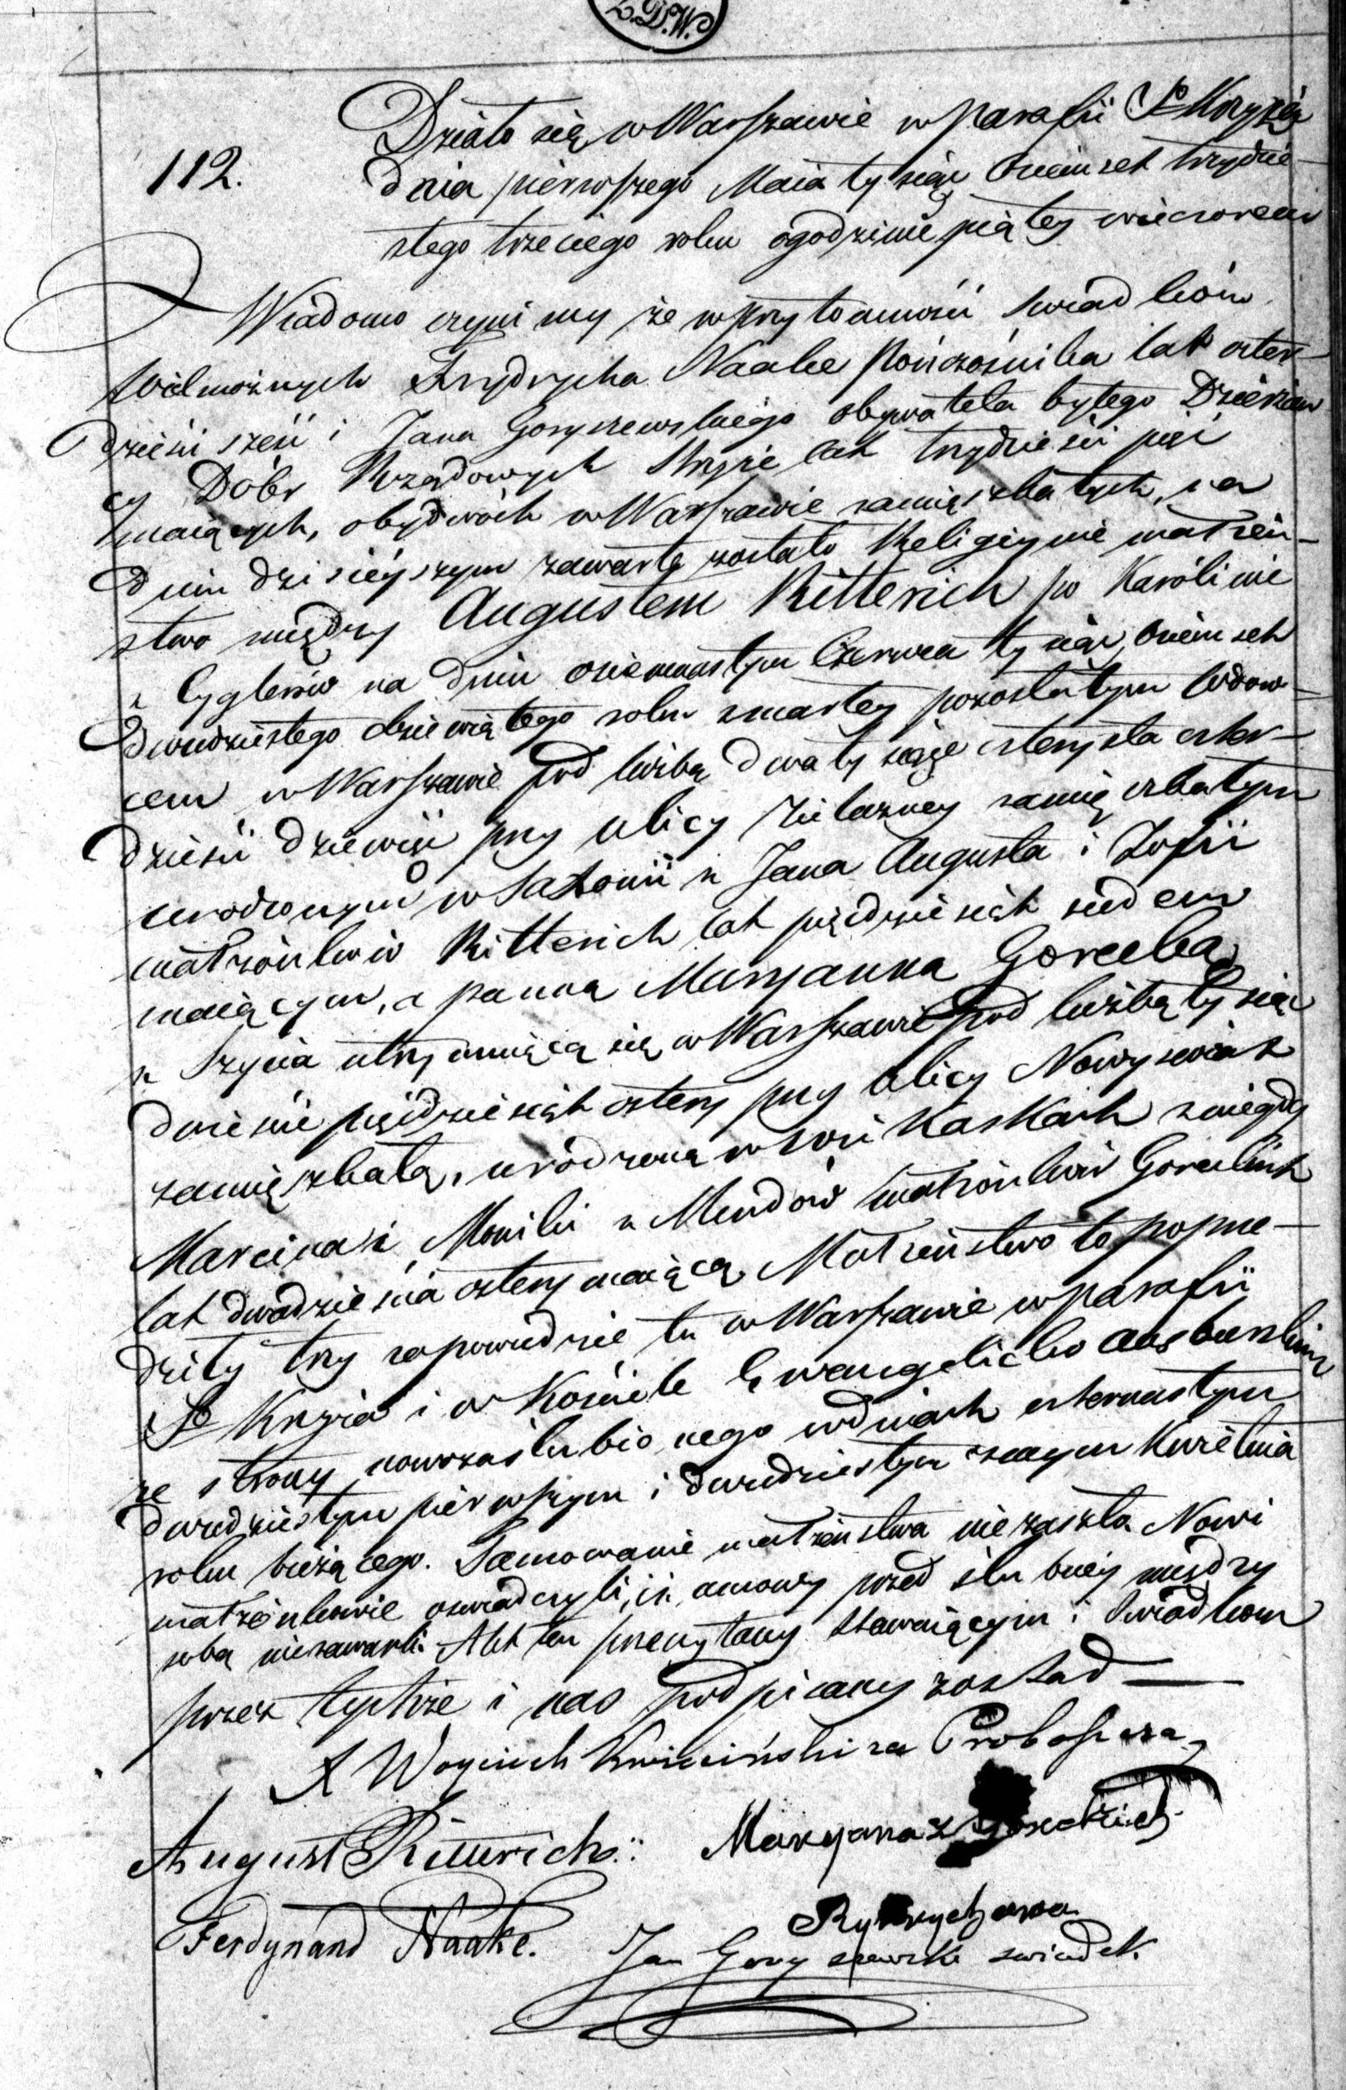 Z.D.W.
Działo się w Warszawie w parafii So Krzyża
112.
dnia pierwszego Maia tysiąc Ośmset trzydzie
stego trzeciego roku ogodzinie piątey wieczorem
Wiadomo czynimy że w przytomności Swiadków
Wielmożnych Frydrycha Naake Pończosznika lat czter-
dzieści sześć i Jana Goryszewskiego obywatela byłego Dzierżaw
cy Dóbr Rządowych Stryie lat trzydzieści pięć
maiących, obydwóch w Warszawie zamięszkałych, na
dniu dzisieyszym zawarte zostało Religiyne małżeń-
stwo między Augustem Ritterich po Karólinie
z Cyglerów na dniu osiemnastym Czerwca tysiąc Ośmset
dwudziestego dziewiątego roku zmarłey pozostałym Wdow-
cem w Warszawie pod liczbą dwa tysiące czterysta czter-
dzieści dziewięć przy ulicy Żelazney zamięszkałym
urodzonym w Saxonii z Jana Augusta i Zofii
małżonków Ritterich lat pięćdziesiąt siedem
maiącym, a panną Maryanna Gorecką
z Szycia utrzymuiącą się w Warszawie pod liczbą tysiąc
dwieście pięćdziesiąt cztery przy ulicy Nowyświat
zamięszkałą, urodzoną w wsi Kaskach z niegdy
Marcina i Moniki z Mendów małżonków Goreckich
lat dwadzieścia cztery maiącą Małżeństwo to poprze-
dziły trzy zapowiedzie tu w Warszawie w parafii
So Krzyża i w Kościele Ewangelicko Ausburskim
ze strony nowozaślubionego w dniach czternastym
dwudziestym pierwszym i dwudziestym ósmym Kwietnia
roku bieżącego. Tamowanie małżeństwa niezaszło Nowi
małżonkowie oswiadczyli, iż umowy przed ślubney między
sobą niezawarli Akt ten przeczytany Stawaiącym i Swiadkom
przez tychże i nas podpisany został
X Woyciech Kwieciński za Proboszcza
August Ritterich
Maryana z Goreckich
Rytrychowa
Ferdynand Naake.
Jan Goryszewski swiadek